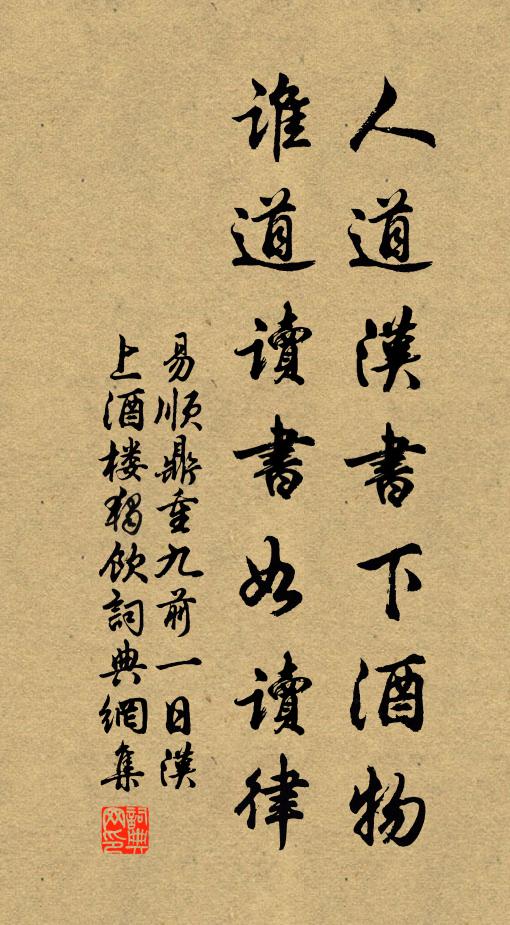 人道漢書下酒物
谁道讀書如讀律
易順鼎重九前一日漢
上酒楼獨飲詞典網集
詞典网印